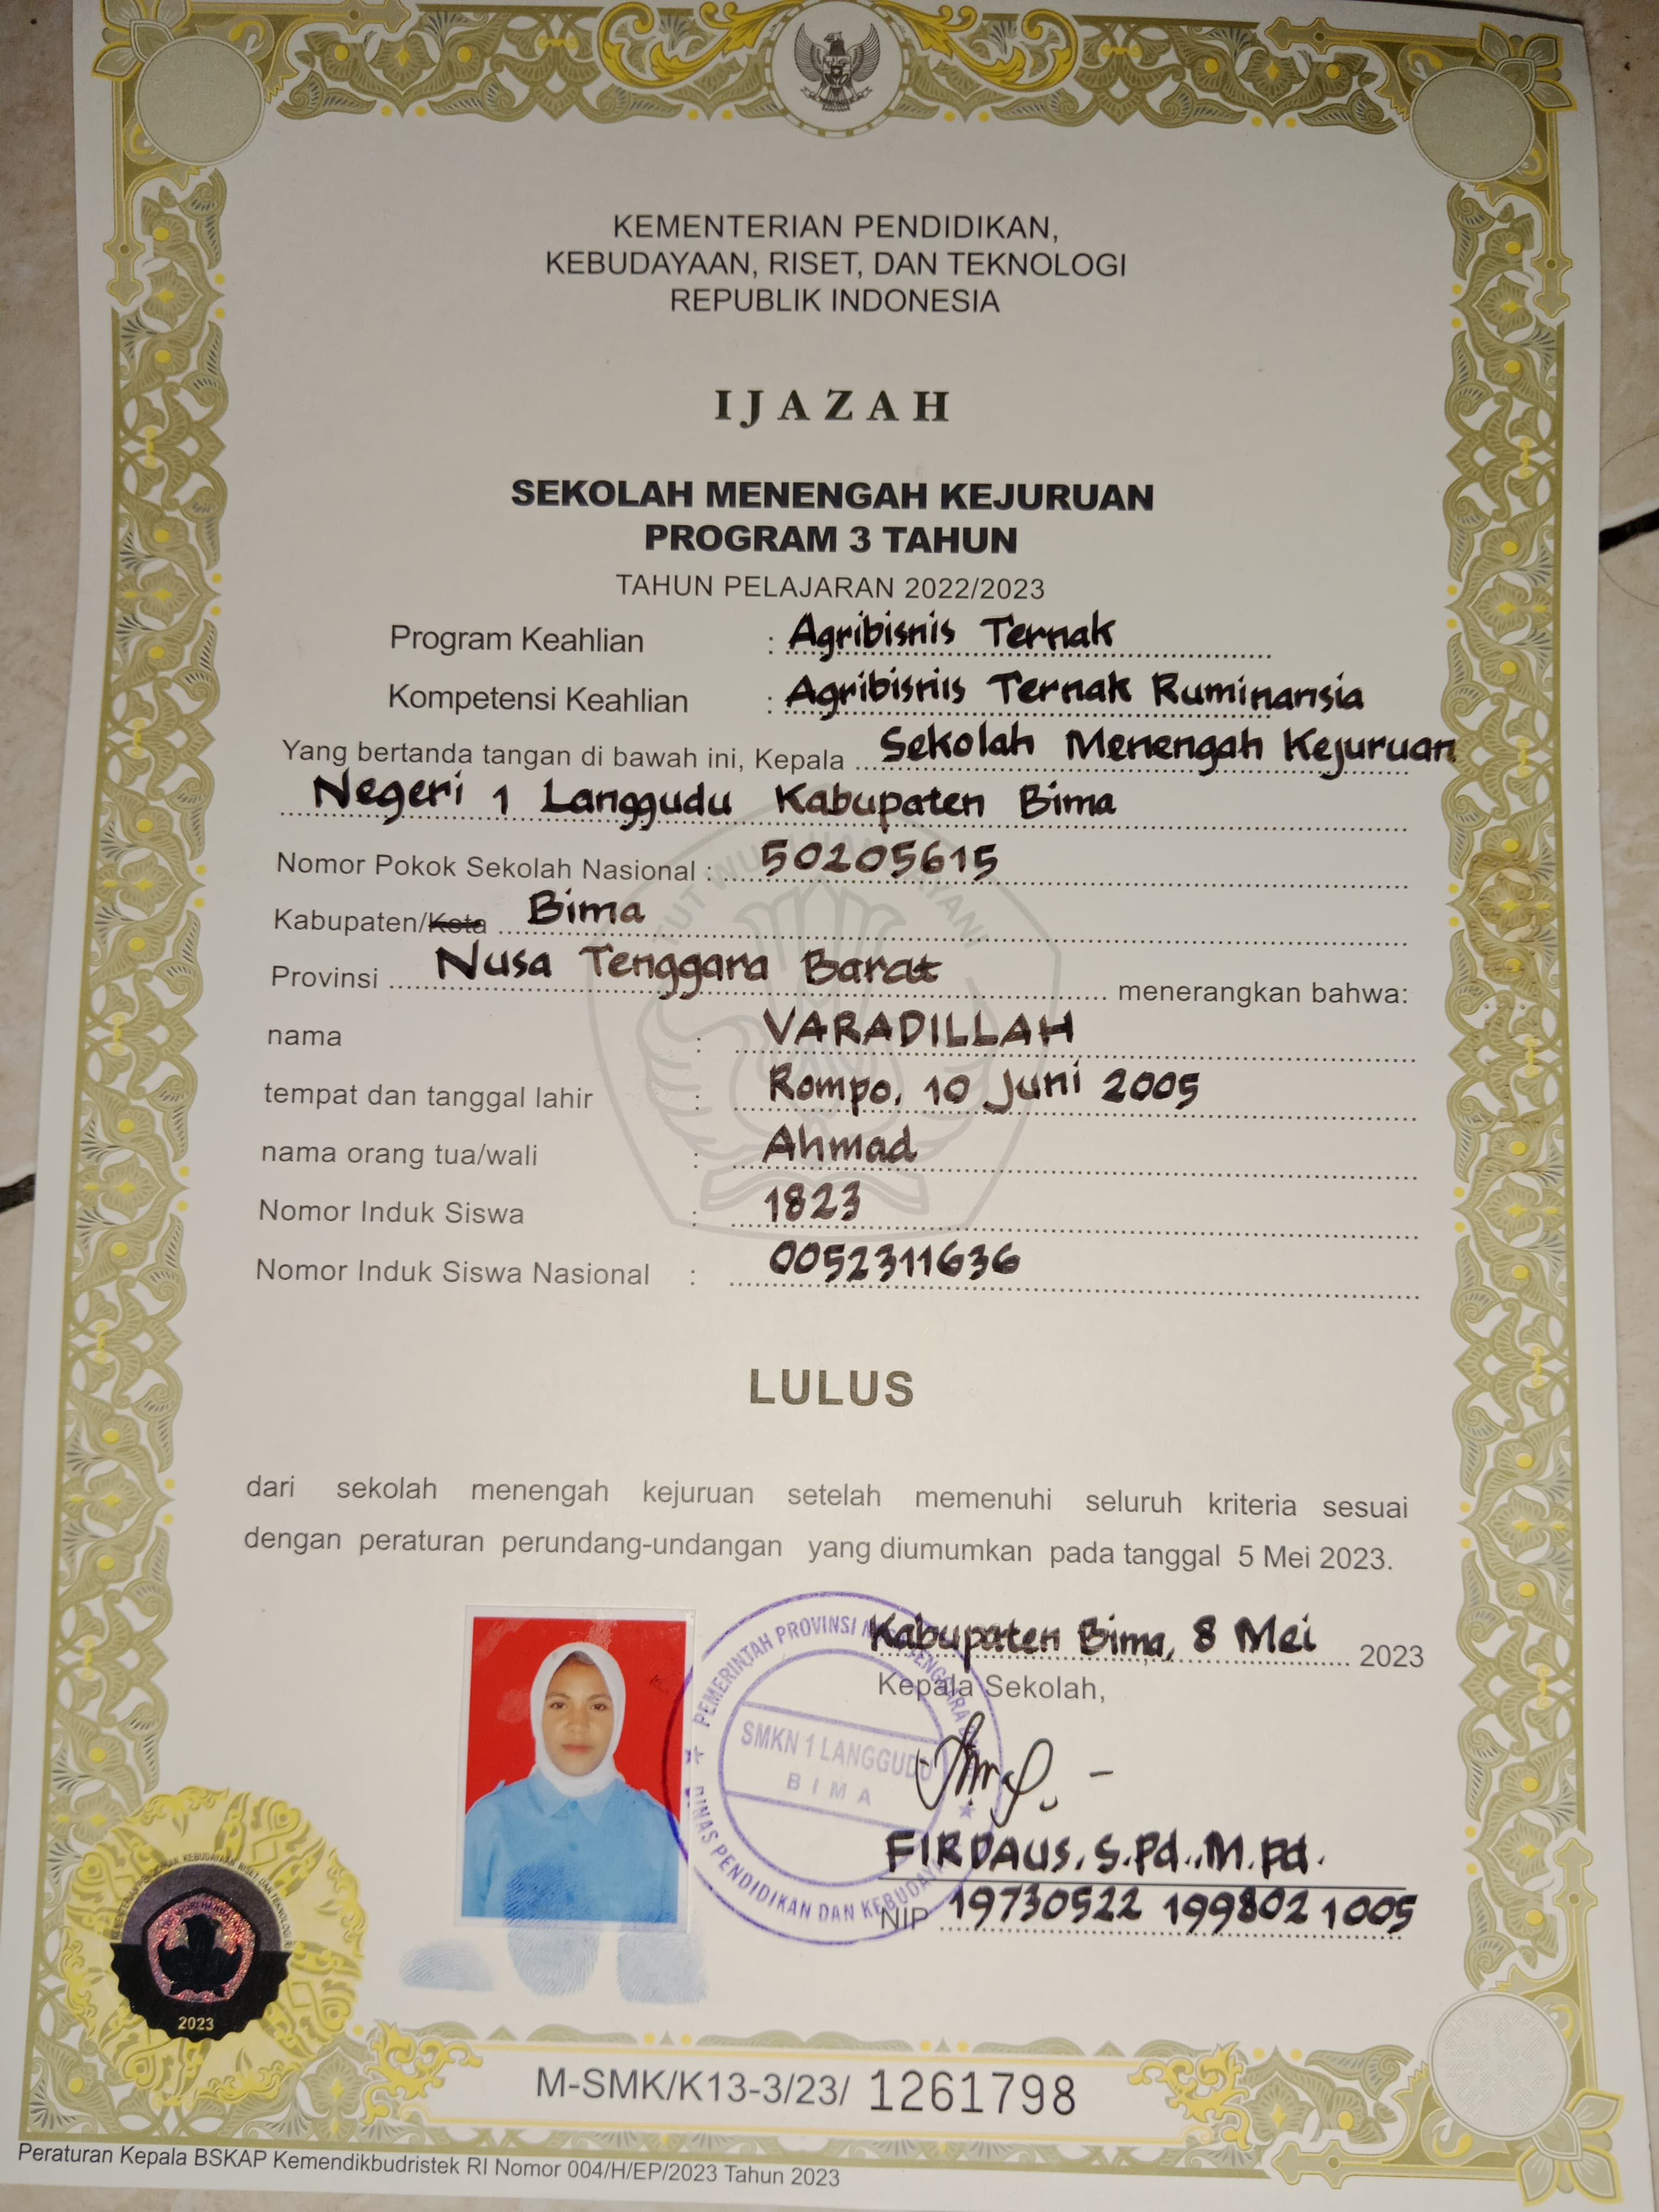 KEMENTERIAN PENDIDIKAN,
KEBUDAYAAN, RISET, DAN TEKNOLOGI
REPUBLIK INDONESIA
IJAZAH
SEKOLAH MENENGAH KEJURUAN
PROGRAM 3 TAHUN
TAHUN PELAJARAN 2022/2023
Program Keahlian : Agribisnis Ternak
Kompetensi Keahlian : Agribisnis Ternak Ruminansia
Yang bertanda tangan di bawah ini, Kepala Sekolah Menengah Kejuruan
Negeri 1 Langgudu Kabupaten Bima
Nomor Pokok Sekolah Nasional : 50205615
Kabupaten/Kota Bima
Provinsi Nusa Tenggara Barat menerangkan bahwa:
nama : VARADILLAH
tempat dan tanggal lahir : Rompo, 10 Juni 2005
nama orang tua/wali : Ahmad
Nomor Induk Siswa : 1823
Nomor Induk Siswa Nasional : 0052311636
LULUS
dari sekolah menengah kejuruan setelah memenuhi seluruh kriteria sesuai
dengan peraturan perundang-undangan yang diumumkan pada tanggal 5 Mei 2023.
Kabupaten Bima, 8 Mei 2023
Kepala Sekolah,
PEMERINTAH PROVINSI TENGGARA
SMKN 1 LANGGUDU
BIMA
DINAS PENDIDIKAN DAN KEBUDAYA
FIRDAUS, S.Pd., M.Pd.
NIP 19730522 199802 1 005
2023
M-SMK/K13-3/23/ 1261798
Peraturan Kepala BSKAP Kemendikbudristek RI Nomor 004/H/EP/2023 Tahun 2023